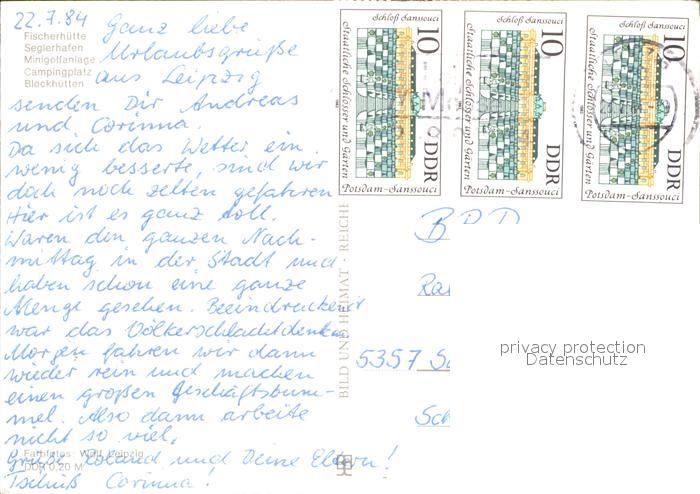 22.7.84 Ganz liebe
Urlaubsgrüße
aus Leipzig
senden Dir Andreas
und Corinna.
Da sich das Wetter ein
wenig besserte, sind wir
doch noch zelten gefahren
Hier ist es ganz toll.
Waren den ganzen Nach-
mittag in der Stadt und
haben schon eine ganze
Menge gesehen. Beeindruckend
war das Völkerschlachtdenkm
Morgen fahren wir dann
wieder rein und machen
einen großen Geschäftsbum-
mel. Also dann arbeite
nicht so viel.
Grüße Roland und Deine Eltern!
Tschüß Corinna!
Fischerhütte
Seglerhafen
Minigolfanlage
Campingplatz
Blockhütten
Farbfotos: Leipzig
DDR 0,20 M
BILD UND HEIMAT · REICHE
Schloß Sanssouci
10
Staatliche Schlösser und Gärten
DDR
Potsdam-Sanssouci
Schloß Sanssouci
10
Staatliche Schlösser und Gärten
DDR
Potsdam-Sanssouci
Schloß Sanssouci
10
Staatliche Schlösser und Gärten
DDR
Potsdam-Sanssouci
5357
privacy protection
Datenschutz